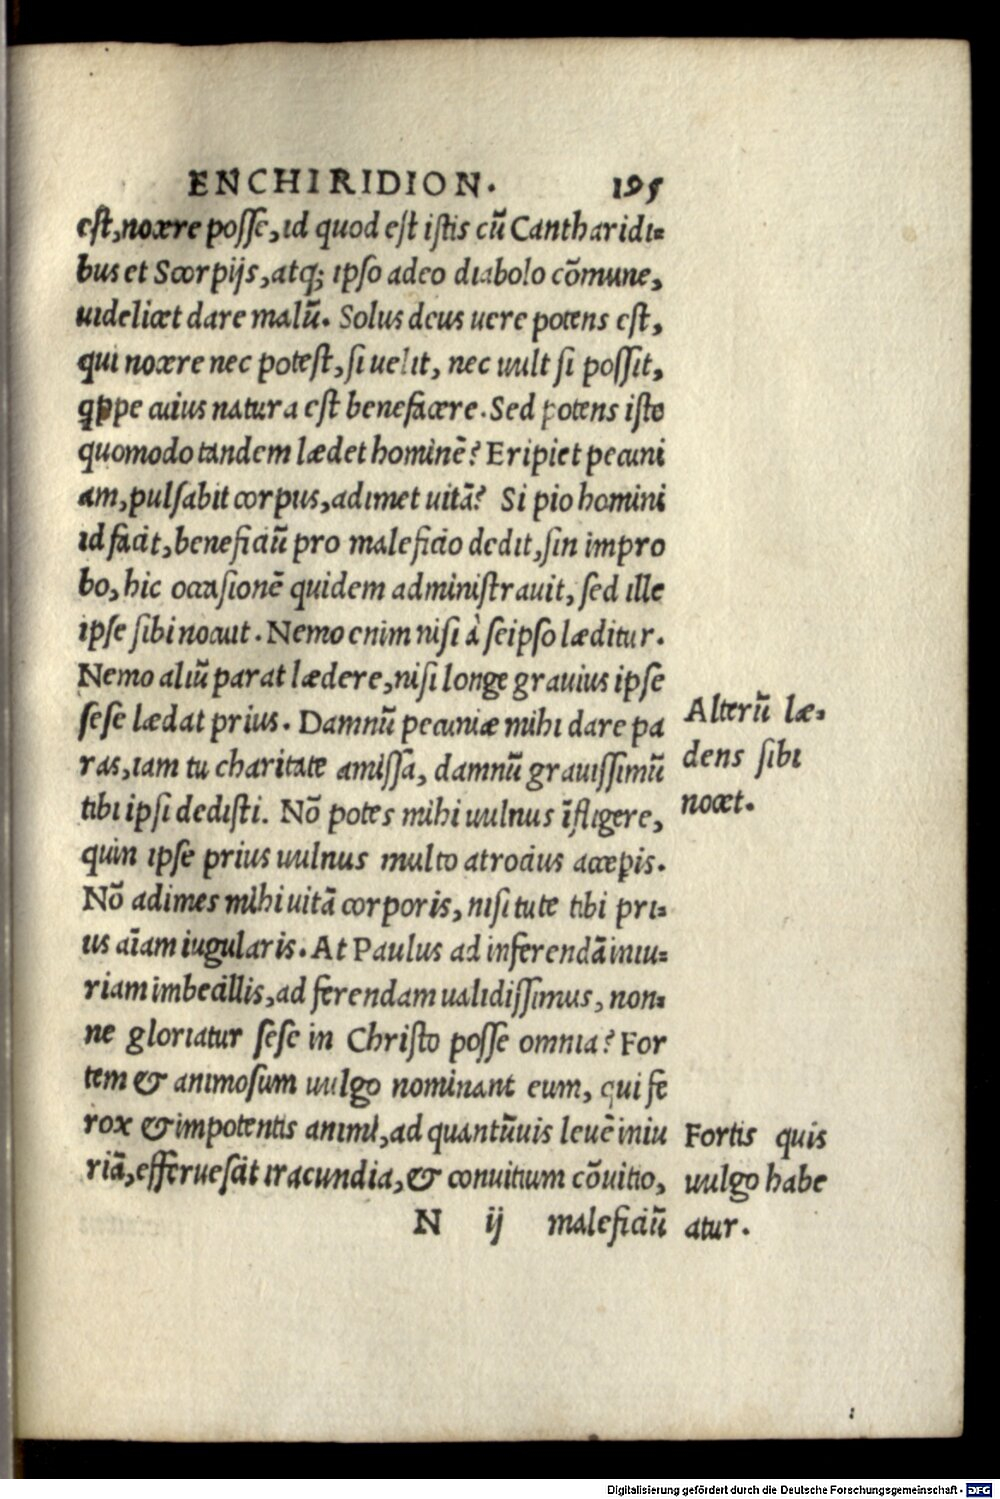 ENCHIRIDION. 195
est, nocere posse, id quod est istis cũ Cantharidi=
bus et Scorpijs, atq; ipso adeo diabolo cõmune,
uidelicet dare malũ. Solus deus uere potens est,
qui nocere nec potest, si uelit, nec uult si possit,
qppe cuius natura est benefacere. Sed potens iste
quomodo tandem lædet hominẽ? Eripiet pecuni
am, pulsabit corpus, adimet uitã? Si pio homini
id facit, beneficiũ pro maleficio dedit, sin impro
bo, hic occasionẽ quidem administrauit, sed ille
ipse sibi nocuit. Nemo enim nisi à seipso læditur.
Nemo aliũ parat lædere, nisi longe grauius ipse
sese lædat prius. Damnũ pecuniæ mihi dare pa
ras, iam tu charitate amissa, damnũ grauissimũ
tibi ipsi dedisti. Nõ potes mihi uulnus ĩfligere,
quin ipse prius uulnus multo atrocius accepis.
Nõ adimes mihi uitã corporis, nisi tute tibi pri=
us aĩam iugularis. At Paulus ad inferendã iniu=
riam imbecillis, ad ferendam ualidissimus, non=
ne gloriatur sese in Christo posse omnia? For
tem & animosum uulgo nominant eum, qui fe
rox & impotentis animi, ad quantũuis leuẽ iniu
riã, efferuescit iracundia, & conuitium cõuitio,
N ij maleficiũ
Alterũ læ=
dens sibi
nocet.
Fortis quis
uulgo habe
atur.
Digitalisierung gefördert durch die Deutsche Forschungsgemeinschaft - DFG